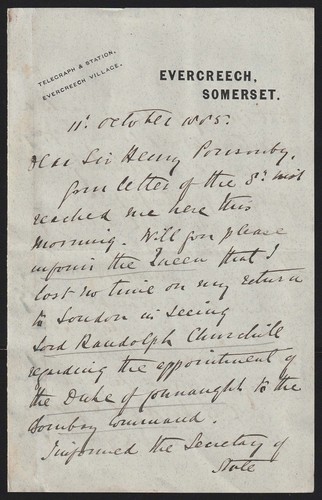 TELEGRAPH & STATION,
EVERCREECH VILLAGE.
EVERCREECH,
SOMERSET.
11t October 1885.
Dear Sir Henry Ponsonby,
Your letter of the 8t inst
reached me here this
morning. Will you please
inform the Queen that I
lost no time on my return
to London in seeing
Lord Randolph Churchill
regarding the appointment of
the Duke of Connaught to the
Bombay Command.
I informed the Secretary of
State